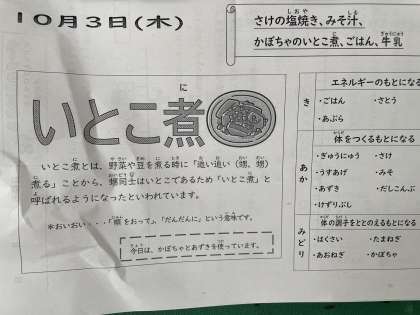 10月3日(木)
さけの塩焼き、みそ汁、
かぼちゃのいとこ煮、ごはん、牛乳
いとこ煮
いとこ煮とは、野菜や豆を煮る時に「追い追い(甥、甥)
煮る」ことから、甥同士はいとこであるため「いとこ煮」と
呼ばれるようになったといわれています。
＊おいおい・・・「順をおって」、「だんだんに」という意味です。
今日は、かぼちゃとあずきを使っています。
き
エネルギーのもとになる
・ごはん ・さとう
・あぶら
あか
体をつくるもとになる
・ぎゅうにゅう ・さけ
・うすあげ ・みそ
・あずき ・だしこんぶ
・けずりぶし
みどり
体の調子をととのえるもとになる
・はくさい ・たまねぎ
・あおねぎ ・かぼちゃ